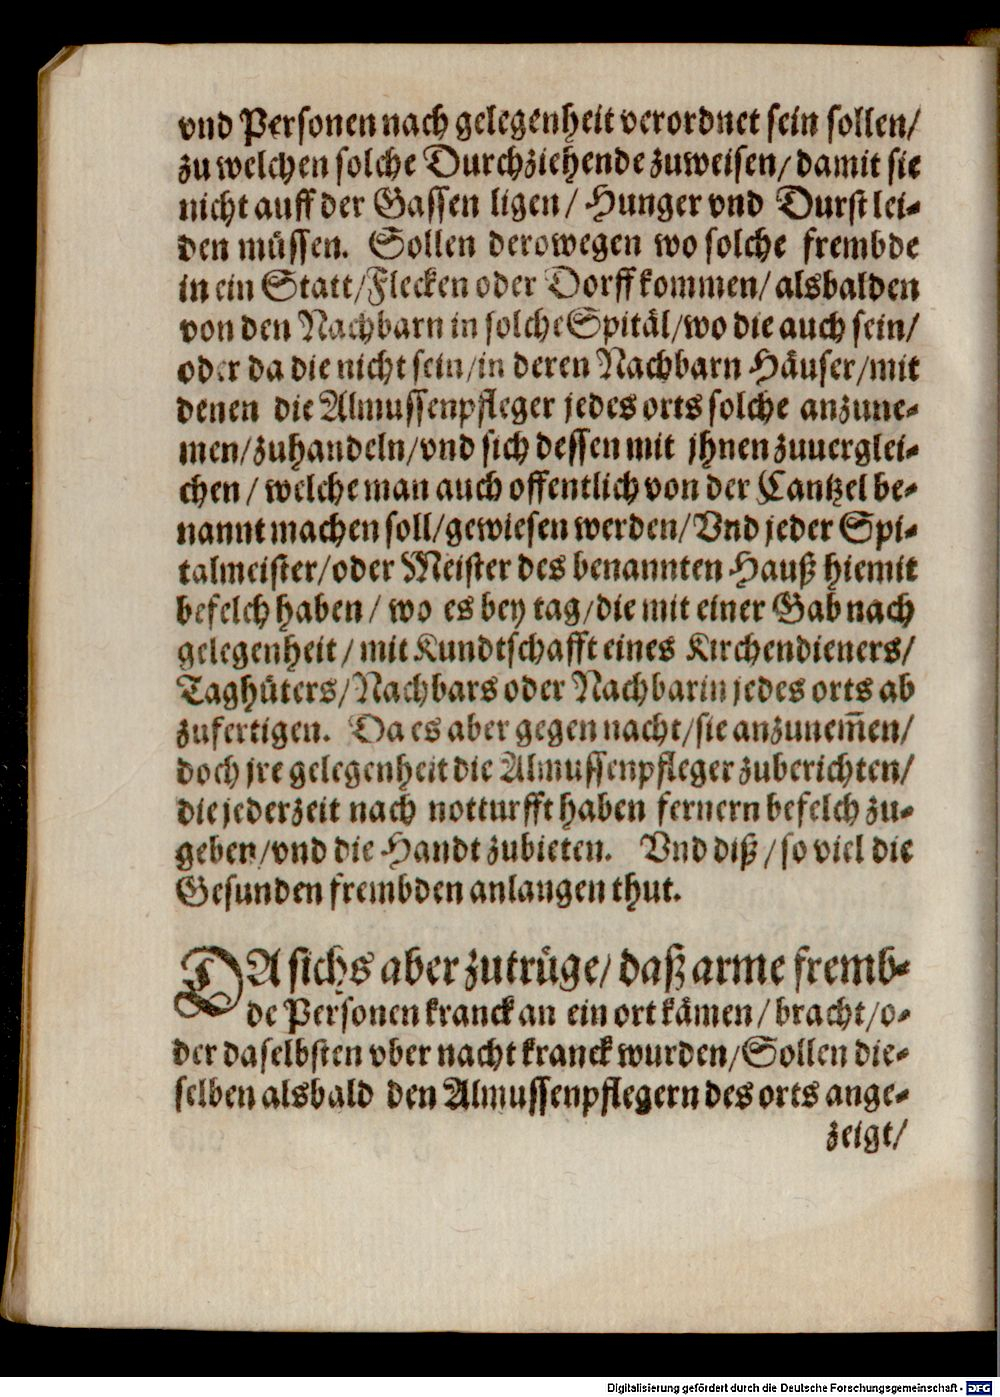 vnd Personen nach gelegenheit verordnet sein sollen/
zu welchen solche Durchziehende zuweisen/ damit sie
nicht auff der Gassen ligen/ Hunger vnd Durst lei-
den müssen. Sollen derowegen wo solche frembde
in ein Statt/Flecken oder Dorff kommen/ alsbalden
von den Nachbarn in solche Spitäl/wo die auch sein/
oder da die nicht sein/in deren Nachbarn Häuser/mit
denen die Almussenpfleger jedes orts solche anzune-
men/zuhandeln/vnd sich dessen mit jhnen zuuerglei-
chen/ welche man auch offentlich von der Cantzel be-
nannt machen soll/gewiesen werden/Vnd jeder Spi-
talmeister/oder Meister des benannten Hauß hiemit
befelch haben/ wo es bey tag/die mit einer Gab nach
gelegenheit/ mit Kundtschafft eines Kirchendieners/
Taghüters/Nachbars oder Nachbarin jedes orts ab
zufertigen. Da es aber gegen nacht/sie anzunem̃en/
doch jre gelegenheit die Almussenpfleger zuberichten/
die jederzeit nach notturfft haben fernern befelch zu-
geben/vnd die Handt zubieten. Vnd diß/so viel die
Gesunden frembden anlangen thut.
DA sichs aber zutrüge/ daß arme fremb-
de Personen kranck an ein ort kämen/ bracht/o-
der daselbsten vber nacht kranck wurden/Sollen die-
selben alsbald den Almussenpflegern des orts ange-
zeigt/
Digitalisierung gefördert durch die Deutsche Forschungsgemeinschaft - DFG